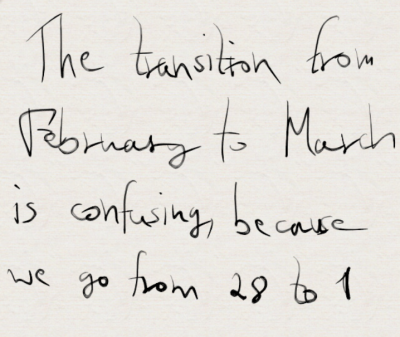 The transition from
February to March
is confusing, because
we go from 28 to 1